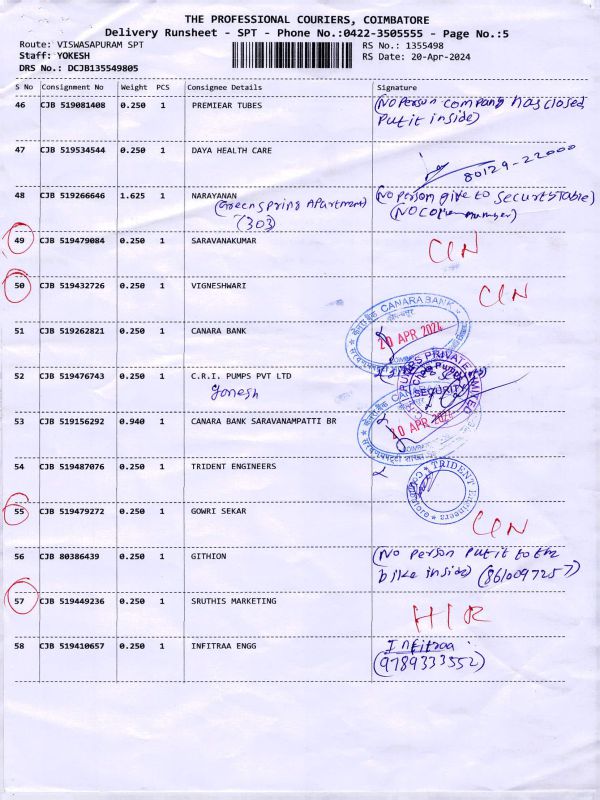 THE PROFESSIONAL COURIERS, COIMBATORE
Delivery Runsheet - SPT - Phone No.:0422-3505555 - Page No.:5
Route: VISWASAPURAM SPT
RS No.: 1355498
Staff: YOKESH
RS Date: 20-Apr-2024
DRS No.: DCJB135549805
S No Consignment No Weight PCS Consignee Details Signature
46 CJB 519081408 0.250 1 PREMIEAR TUBES (No Person company has closed
Put it inside)
47 CJB 519534544 0.250 1 DAYA HEALTH CARE
80129-22000
48 CJB 519266646 1.625 1 NARAYANAN (No Person give to
(Greenspring Apartment)
(303)
49 CJB 519479084 0.250 1 SARAVANAKUMAR
50 CJB 519432726 0.250 1 VIGNESHWARI
51 CJB 519262821 0.250 1 CANARA BANK
CANARA BANK
20 APR 2024
52 CJB 519476743 0.250 1 C.R.I. PUMPS PVT LTD
PUMPS PRIVATE LIMITED
SECURITY
53 CJB 519156292 0.940 1 CANARA BANK SARAVANAMPATTI BR
20 APR 2024
54 CJB 519487076 0.250 1 TRIDENT ENGINEERS
TRIDENT Engineers
55 CJB 519479272 0.250 1 GOWRI SEKAR
56 CJB 80386439 0.250 1 GITHION (No Person Put it to the
bike inside)
57 CJB 519449236 0.250 1 SRUTHIS MARKETING
58 CJB 519410657 0.250 1 INFITRAA ENGG Infitraa
(9789333552)